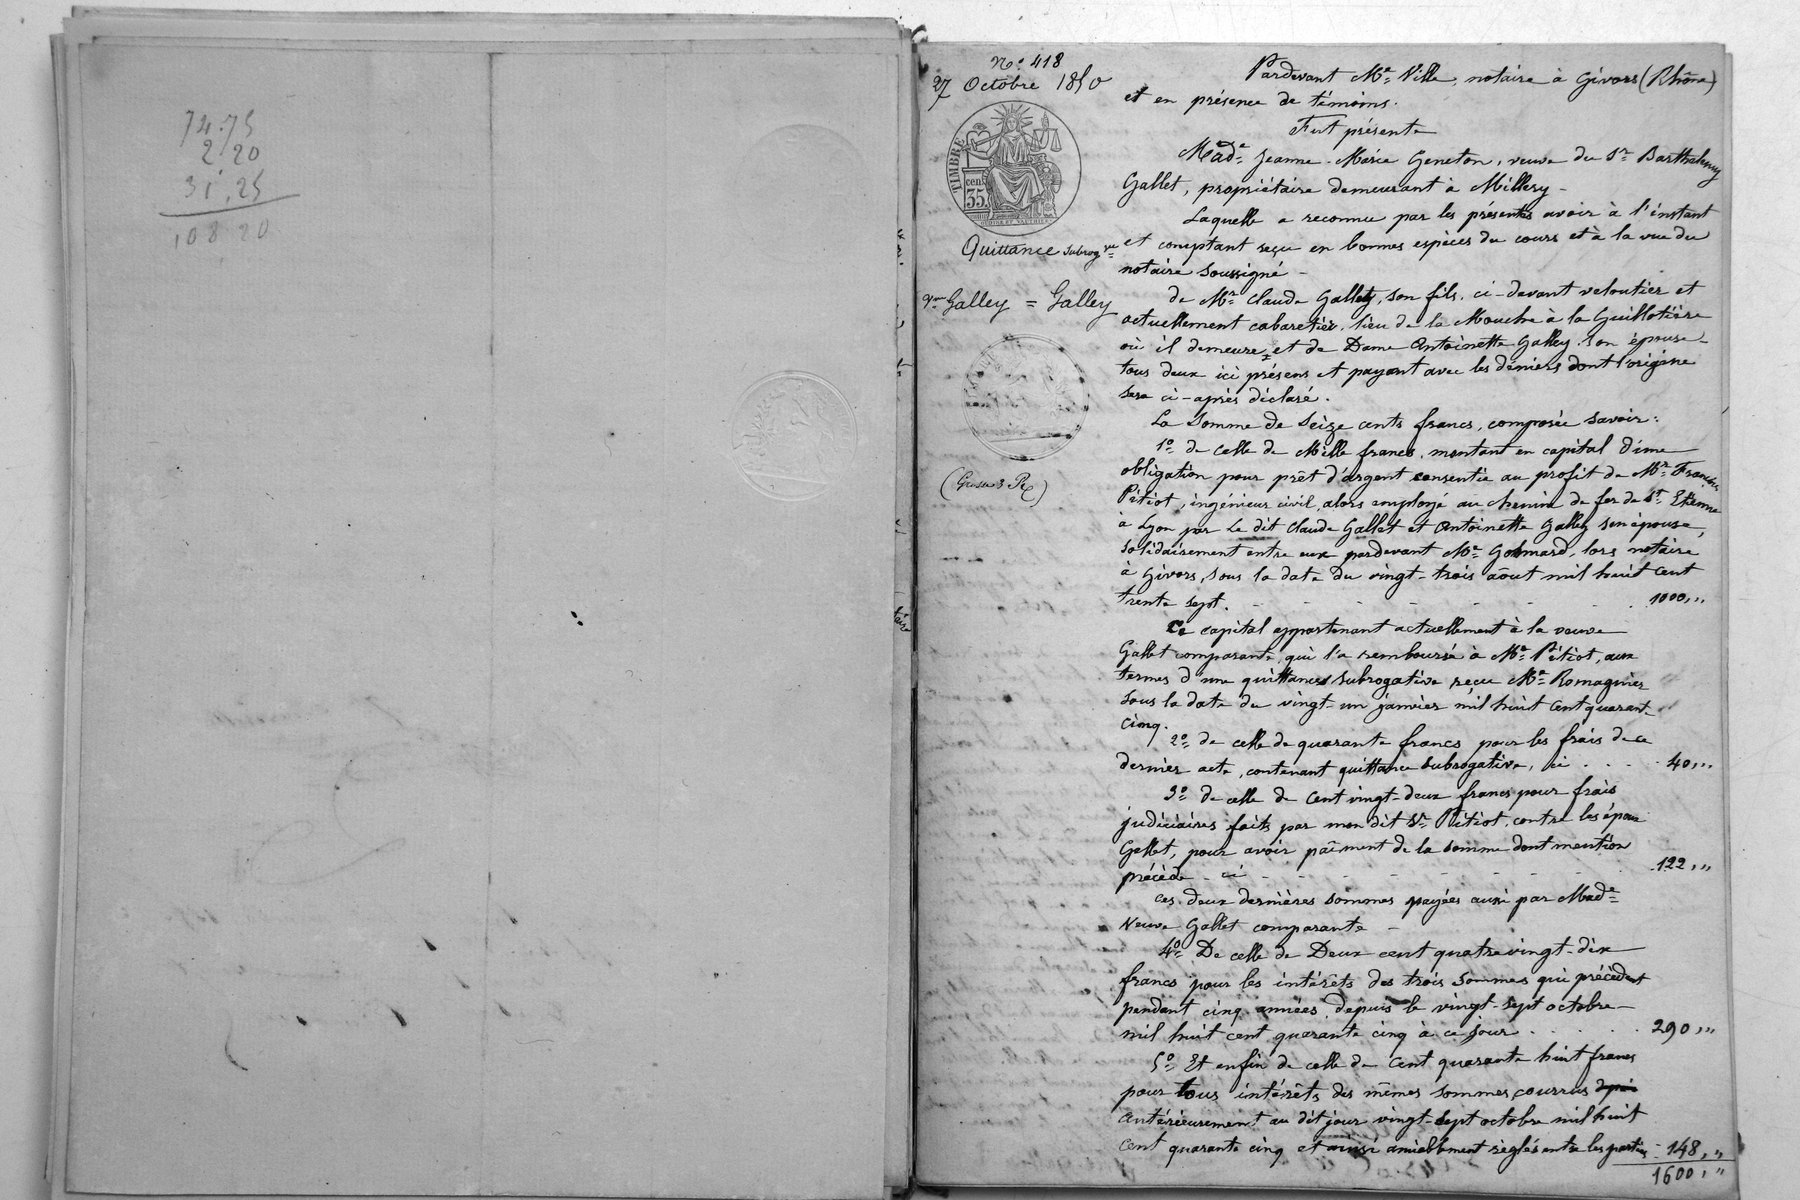 74.75
2 20
31,25
108 20
No. 418
27 Octobre 1850
TIMBRE
35 cen
Quittance subrog.ve
Vve Galley = Galley
(Grosse 3 R.)
Pardevant Me Ville, notaire à Givors (Rhône)
et en présence de témoins.
Fut présente
Made Jeanne-Marie Geneton, veuve du Sr Barthelemy
Gallet, propriétaire demeurant à Millery -
Laquelle a reconnu par les présentes avoir à l'instant
et comptant reçu en bonnes espèces du cours et à la vue du
notaire soussigné -
de Mr Claude Gallet, son fils, ci-devant veloutier et
actuellement cabaretier, lieu de la Mouche à la Guillotière
où il demeure, et de Dame Antoinette Galley son épouse -
tous deux ici présens et payant avec les deniers dont l'origine
sera ci-après déclaré.
La somme de Seize cents francs, composée savoir:
1o de celle de Mille francs, montant en capital d'une
obligation pour prêt d'argent consentie au profit de Mr François
Pitiot, ingénieur civil, alors employé au chemin de fer de St Etienne
à Lyon par le dit Claude Gallet et Antoinette Galley son épouse,
solidairement entre eux pardevant Me Gohmard, lors notaire
à Givors, sous la date du vingt-trois août mil huit cent
trente sept. - - - - - - 1000,,,
Ce capital appartenant actuellement à la veuve
Gallet comparante, qui l'a remboursé à Mr Pitiot, aux
termes d'une quittance subrogative reçu Me Romagnier
sous la date du vingt-un janvier mil huit cent quarante
cinq.
2o de celle de quarante francs pour les frais de ce
dernier acte, contenant quittance subrogative, ci . . . . 40,,,
3o de celle de Cent vingt-deux francs pour frais
judiciaires faits par mon dit Sr Pitiot, contre les époux
Gallet, pour avoir paîment de la somme dont mention
précède - ci - - - - - - 122,,,
Ces deux dernières sommes payées aussi par Made
Veuve Gallet comparante -
4o De celle de Deux cent quatre vingt-dix
francs pour les intérêts des trois sommes qui précèdent
pendant cinq années, depuis le vingt-sept octobre -
mil huit cent quarante cinq à ce jour . . . . . 290,,,
5o Et enfin de celle de Cent quarante huit francs
pour tous intérêts des mêmes sommes, courrus depui
antérieurement au dit jour vingt-sept octobre mil huit
cent quarante cinq et ainsi amiablement réglés entre les parties - 148,,,
1600,,,